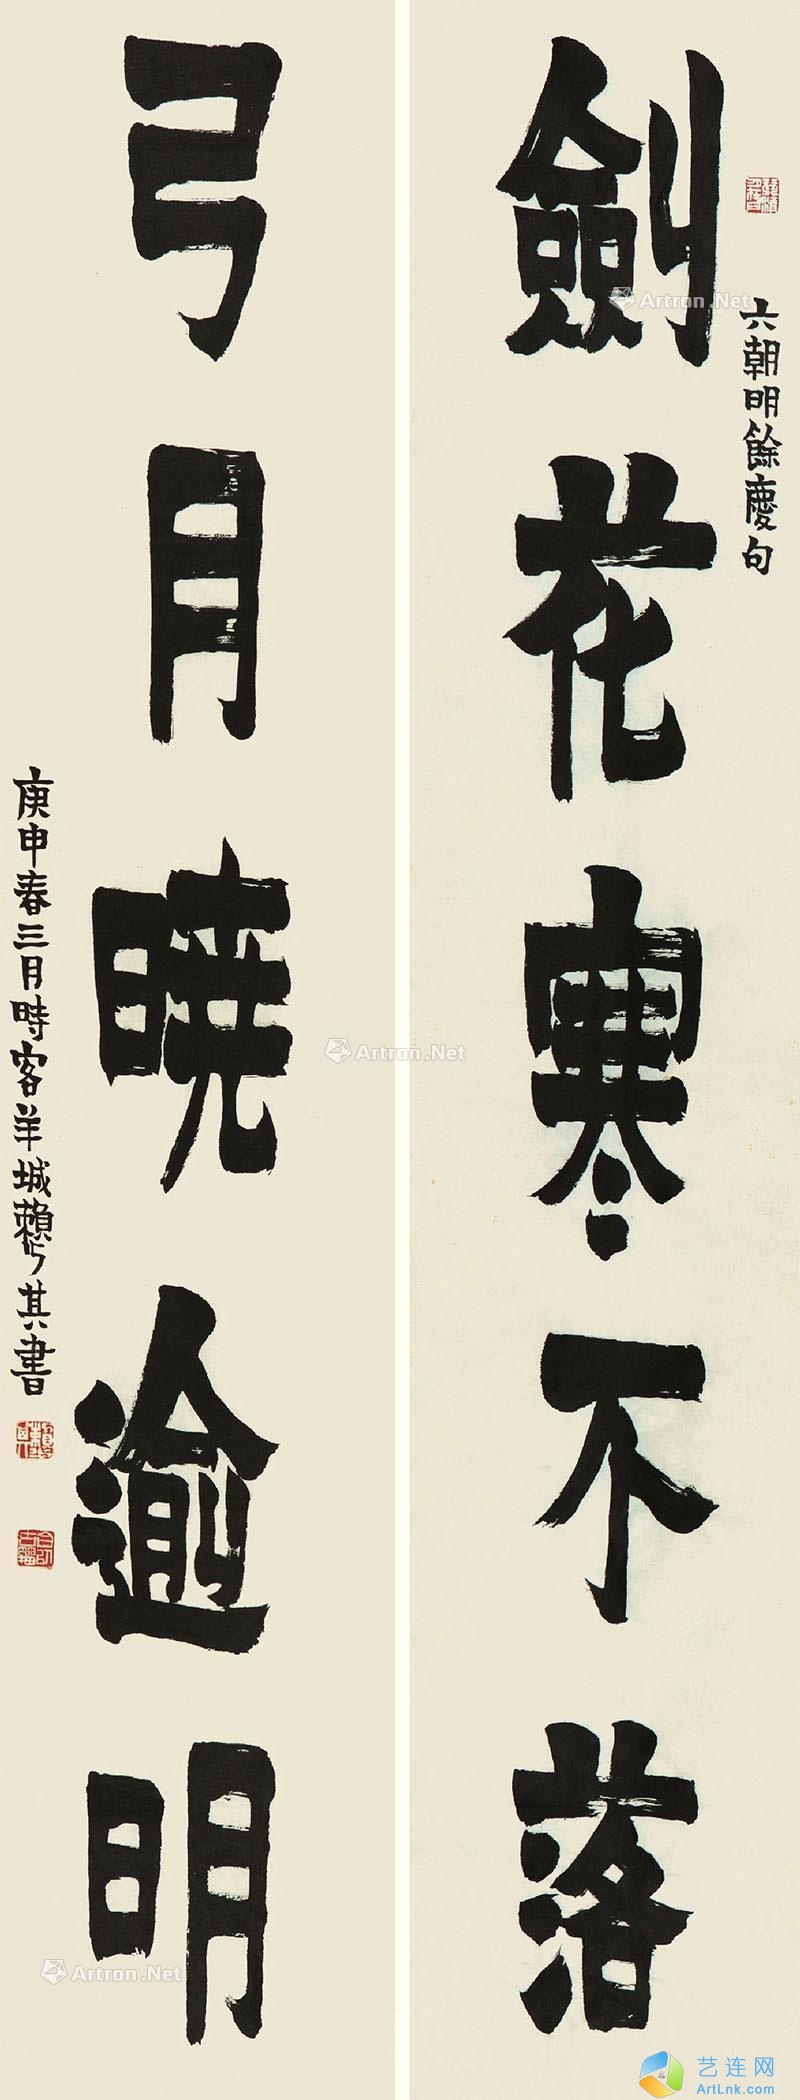 劍花寒不落
六朝明餘慶句
弓月曉逾明
庚申春三月時客羊城賴少其書
Artron.Net
Artron.Net
Artron.Net
艺连网
ArtLnk.com